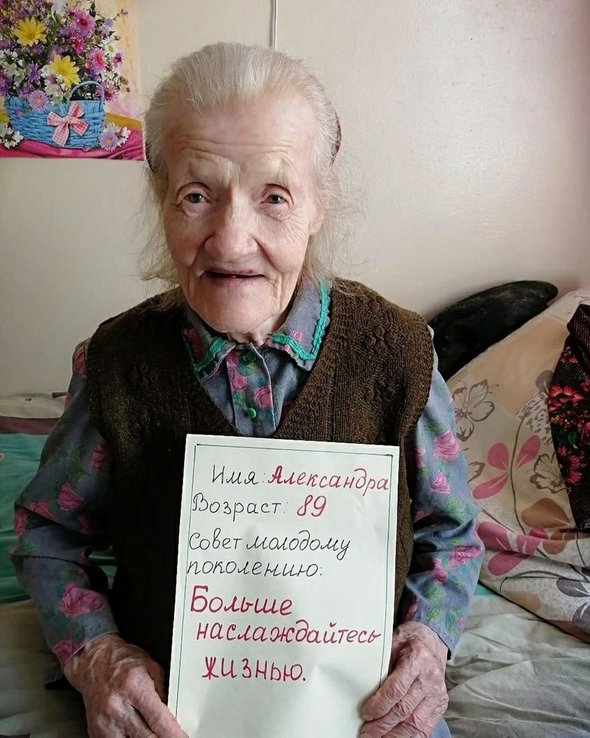 Имя: Александра
Возраст: 89
Совет молодому
поколению:
Больше
наслаждайтесь
жизнью.